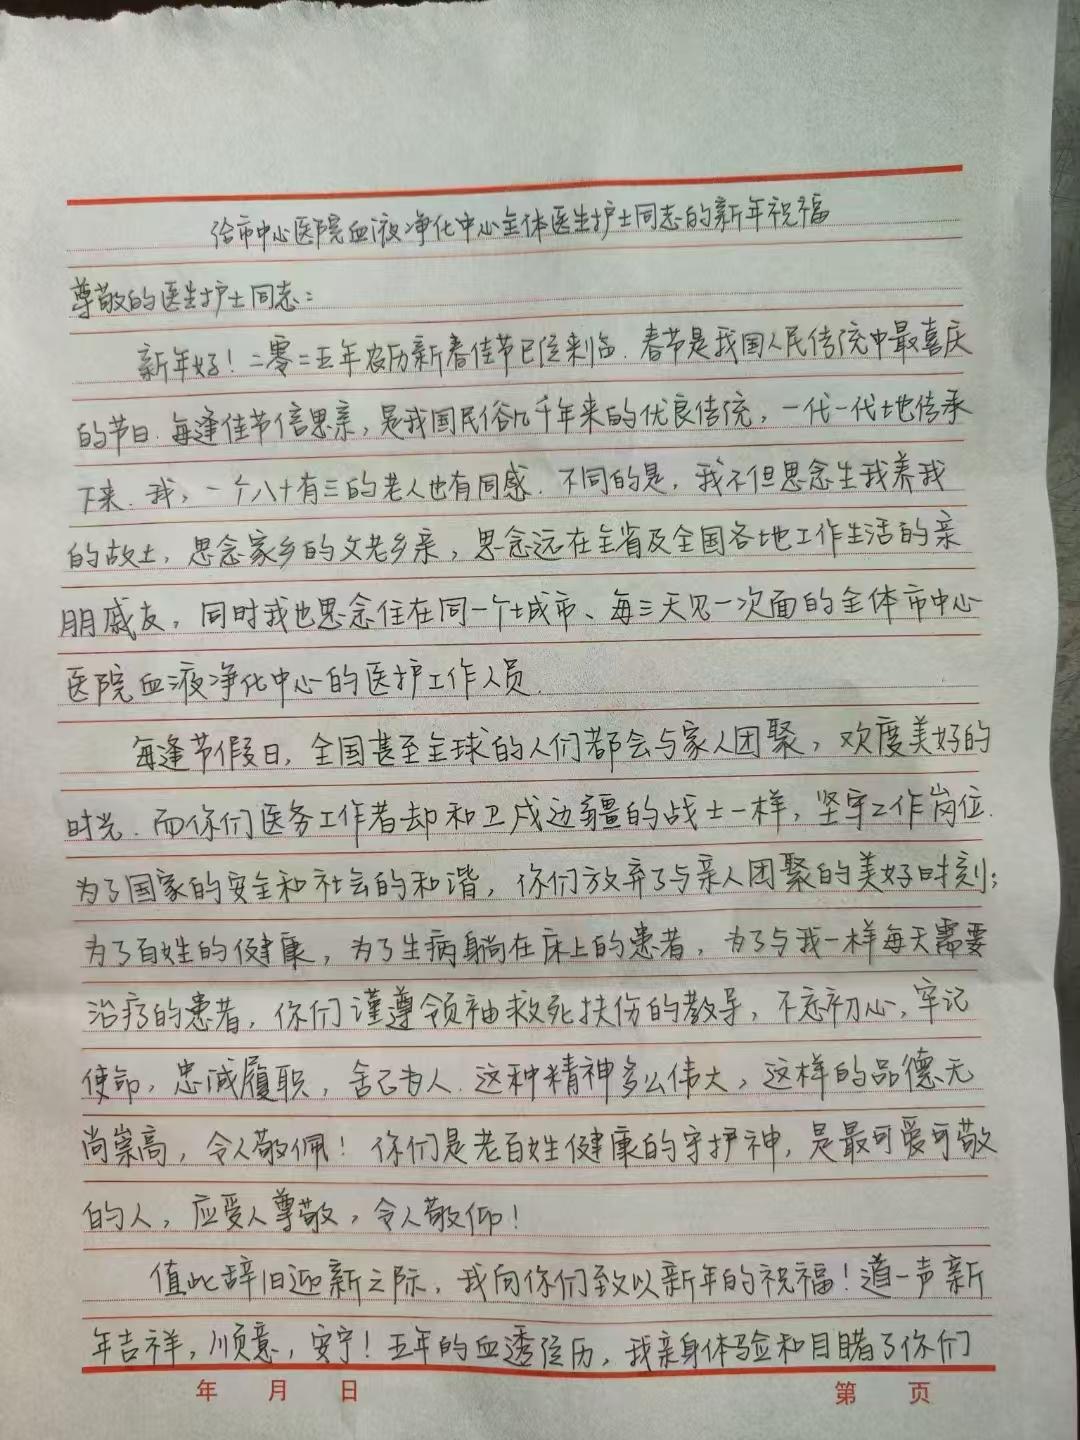 给市中心医院血液净化中心全体医生护士同志的新年祝福
尊敬的医生护士同志：
新年好！二零二五年农历新春佳节已经来临．春节是我国人民传统中最喜庆
的节日．每逢佳节倍思亲，是我国民俗几千年来的优良传统，一代一代地传承
下来．我，一个八十有三的老人也有同感．不同的是，我不但思念生我养我
的故土，思念家乡的父老乡亲，思念远在全省及全国各地工作生活的亲
朋戚友，同时我也思念住在同一个城市、每三天见一次面的全体市中心
医院血液净化中心的医护工作人员．
每逢节假日，全国甚至全球的人们都会与家人团聚，欢度美好的
时光．而你们医务工作者却和卫戍边疆的战士一样，坚牢工作岗位．
为了国家的安全和社会的和谐，你们放弃了与亲人团聚的美好时刻；
为了百姓的健康，为了生病躺在床上的患者，为了与我一样每天需要
治疗的患者，你们谨遵领袖救死扶伤的教导，不忘初心，牢记
使命，忠诚履职，舍己为人．这种精神多么伟大，这样的品德无
尚崇高，令人敬佩！你们是老百姓健康的守护神，是最可爱可敬
的人，应受人尊敬，令人敬仰！
值此辞旧迎新之际，我向你们致以新年的祝福！道一声新
年吉祥，顺意，安宁！五年的血透经历，我亲身体验和目睹了你们
年 月 日 第 页